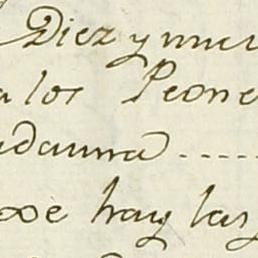 Diez y nuev
a los Peone
cadauna .....
oxe hay las